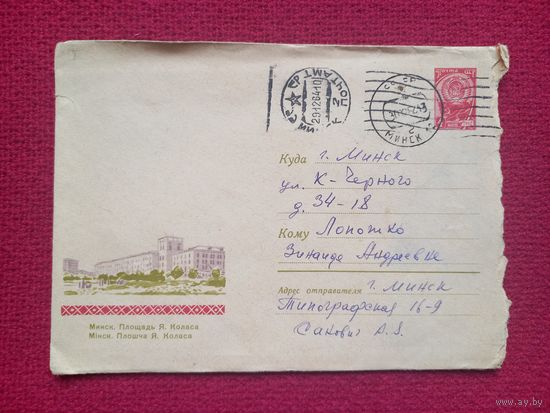 СССР
ПОЧТАМТ
291264
МИНСК
2
Куда г. Минск
ул. К-Черного
д. 34-18
Кому Лопотко
Зинаиде Андреевне
Адрес отправителя г. Минск
Типографская 16-9
Сакович А. Я.
Минск. Площадь Я. Коласа
Мінск. Плошча Я. Коласа
www.ay.by